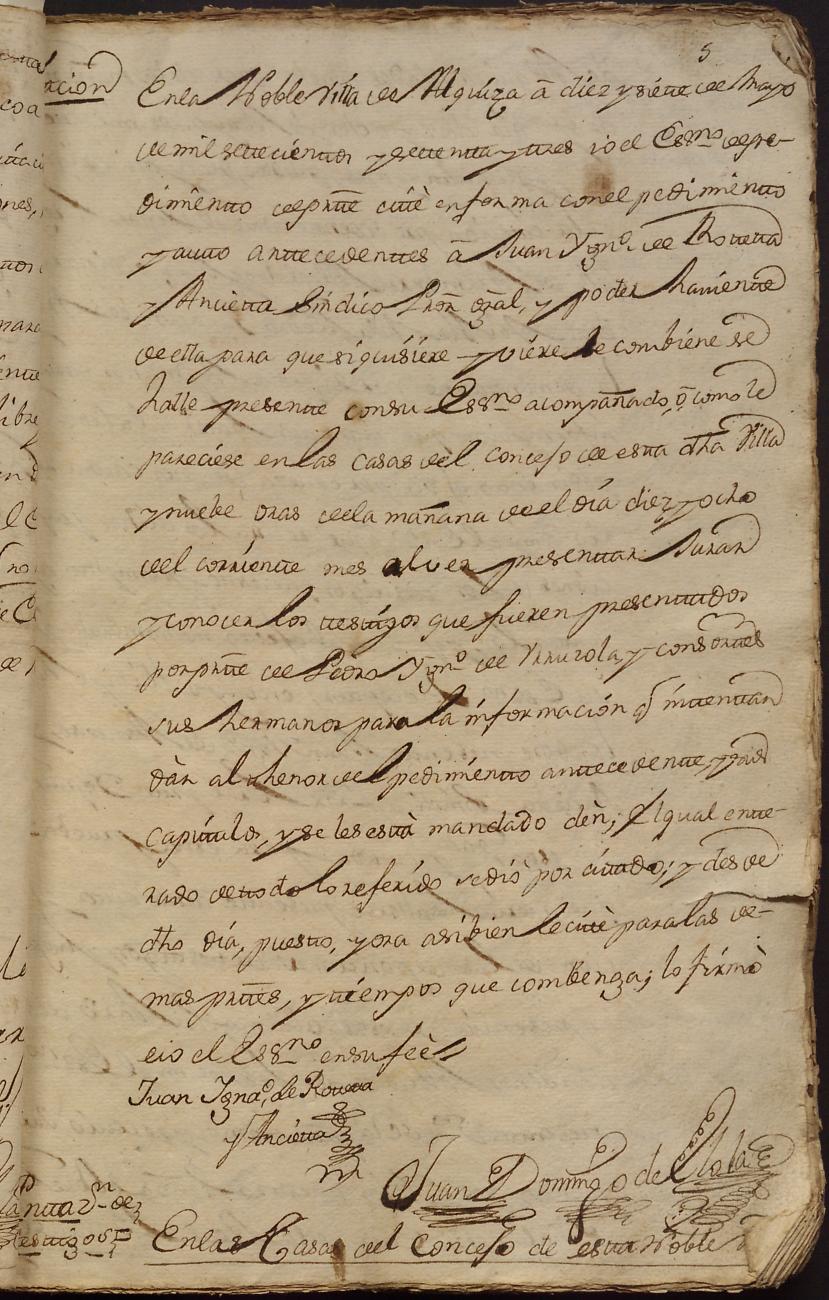 5
En la Noble Villa de Alquiza â diez y siete de Mayo
de mil setecientos y setenta y tres io el Essno de pe-
dimento de prtte citè en forma con el pedimiento
y autto anttecedenttes â Juan Ygno de Rotetta
y Ancietta Síndico Prôr gral, y poder haviente
de ella para que si quisiere y viere le combiene se
halle presente con su Essno acompañado, ô como le
pareciese en las casas del Concejo de esta dha Villa
y nuebe oras de la mañana de el día diez y ocho
del corriente mes al ver presenttar Jurar
y conocer los testigos que fueren presenttados
por prtte de Pedro Ygno de Yrruzola y consortes
sus hermanos para la información q intentan
dàr al thenor del pedimiento anttecedente, y sus
capítulos, y se les està mandado dèn; el qual ente-
rado de todo lo referido se diò por citado; y desde
dho día, puesto, y ora asi bien le citè para las de-
mas prttes, y tiempos que combenga; lo firmò
e io el Essno en su feè
Juan Ignao de Rotetta
y Ancietta
Juan Domingo de
En las Casas del Concejo de esta Noble